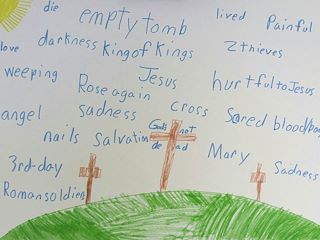 die
empty tomb
lived
Painful
love
darkness
king of Kings
2 thieves
weeping
Jesus
hurtful to Jesus
Rose again
angel
sadness
cross
Scared
blood
nails
Salvation
God's not dead
Mary
3rd-day
Sadness
Roman soldiers